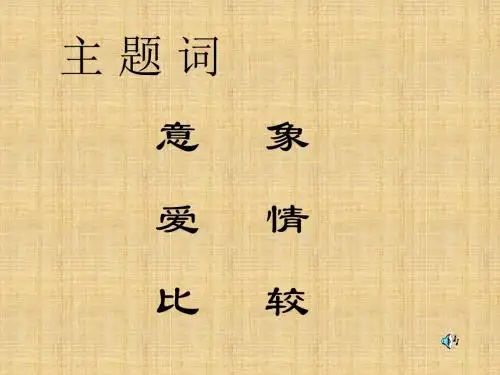 主题词
意象
爱情
比较